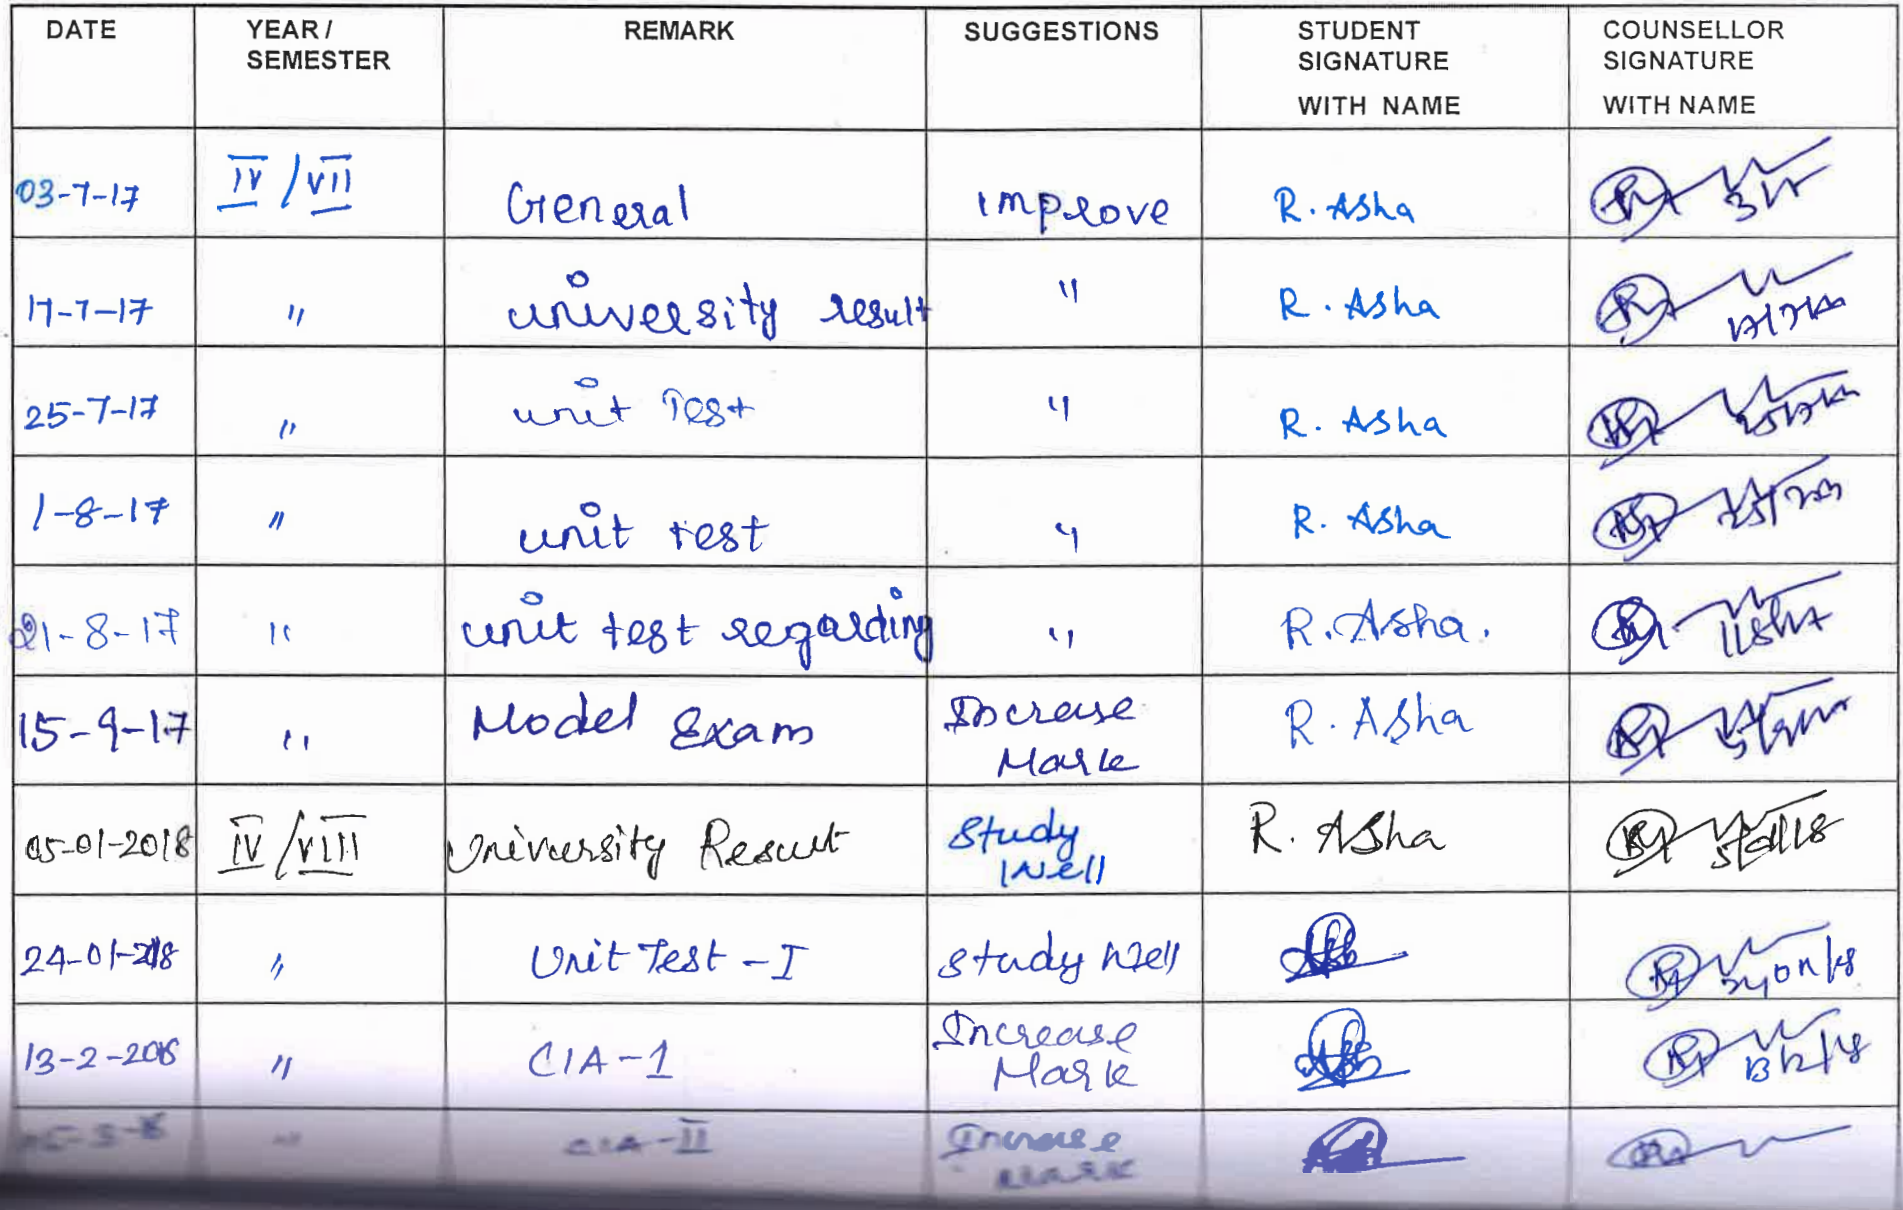 DATE YEAR / SEMESTER REMARK SUGGESTIONS STUDENT SIGNATURE WITH NAME COUNSELLOR SIGNATURE WITH NAME
03-7-17 IV / VII General improve R. Asha
17-7-17 " university result " R. Asha
25-7-17 " unit Test " R. Asha
1-8-17 " unit test " R. Asha
21-8-17 " unit test regarding " R. Asha.
15-9-17 " Model Exam Increase Mark R. Asha
05-01-2018 IV / VIII University Result Study Well R. Asha
24-01-2018 " Unit Test - I Study Well
13-2-2018 " CIA - 1 Increase Mark
" CIA - II Increase Mark